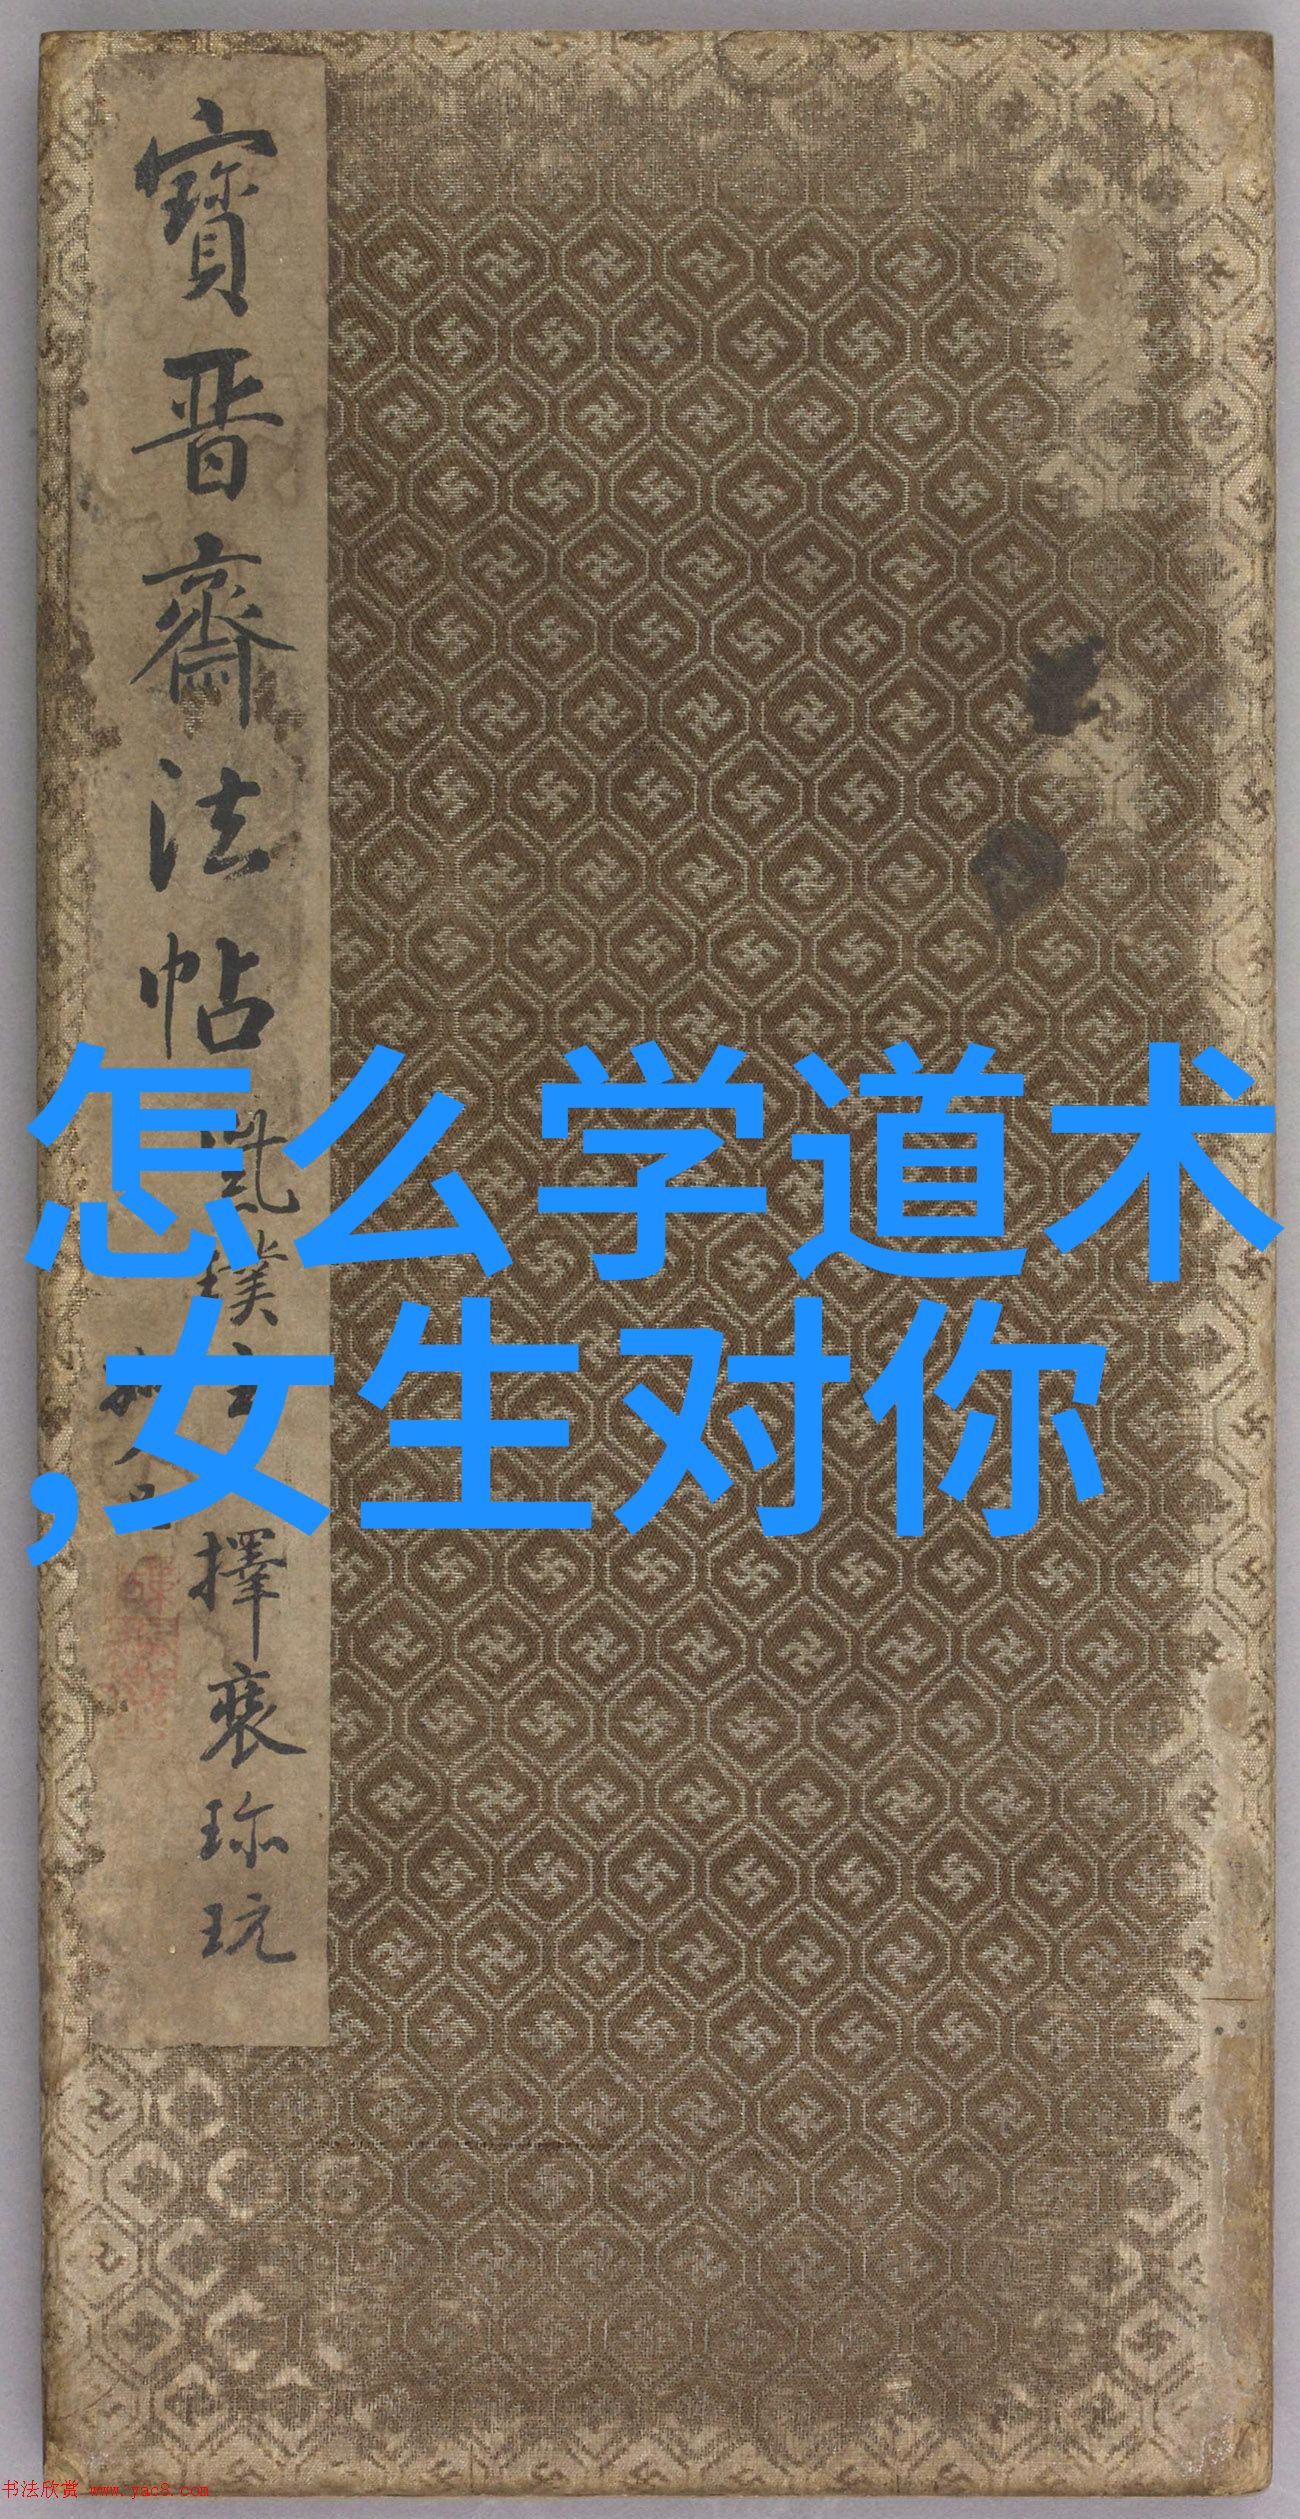 寶晋齋法帖
擇裘珎玩
怎么学道术
,女生对你
书法欣赏 www.yac8.com